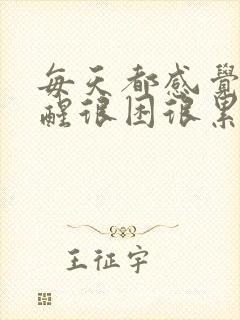 每天都感覺
醒很困很累
王征宇